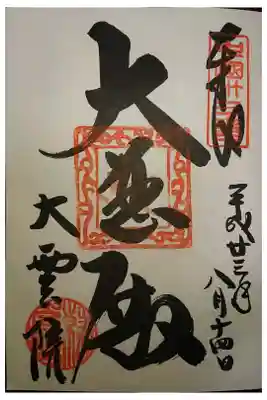 奉拝
平成廿三年
八月十四日
大悲殿
大雲院